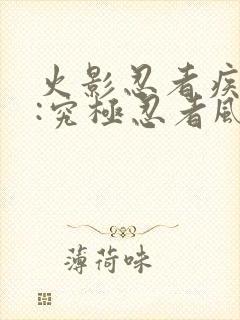 火影忍者疾
:究極忍者風
薄荷味